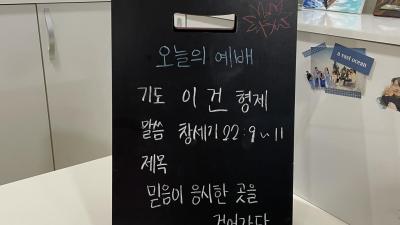 오늘의 예배
기도 이 건 형제
말씀 창세기 22:9~11
제목
믿음이 응시한 곳을
a vast ocean